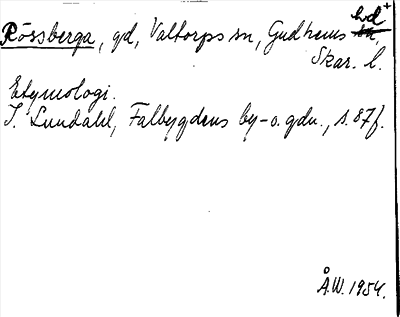 Rössberga, gd, Valtorps sn, Gudhems hd+
Skar. l.
Etymologi.
I. Lundahl, Falbygdens by- o. gdn., s. 87f.
Å.W. 1954.